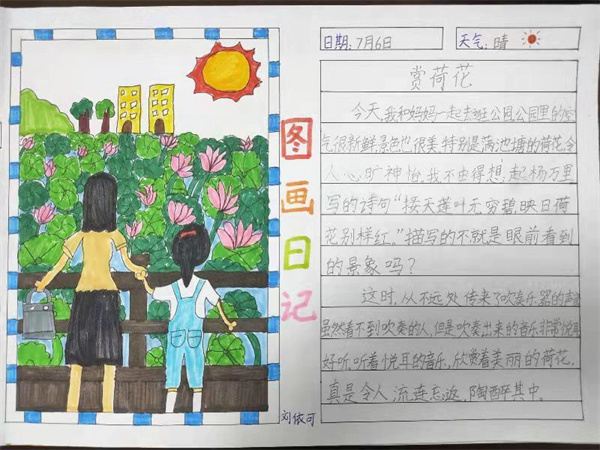 日期：7月6日
天气：晴
赏荷花
今天，我和妈妈一起去逛公园，公园里的空
气很新鲜，景色也很美，特别是满池塘的荷花，令
人心旷神怡。我不由得想起杨万里
写的诗句“接天莲叶无穷碧，映日荷
花别样红。”描写的不就是眼前看到
的景象吗？
这时，从不远处传来了吹奏乐器的声音，
虽然看不到吹奏的人，但是吹奏出来的音乐非常悦耳
好听。听着悦耳的音乐，欣赏着美丽的荷花，
真是令人流连忘返，陶醉其中。
图画日记
刘依可